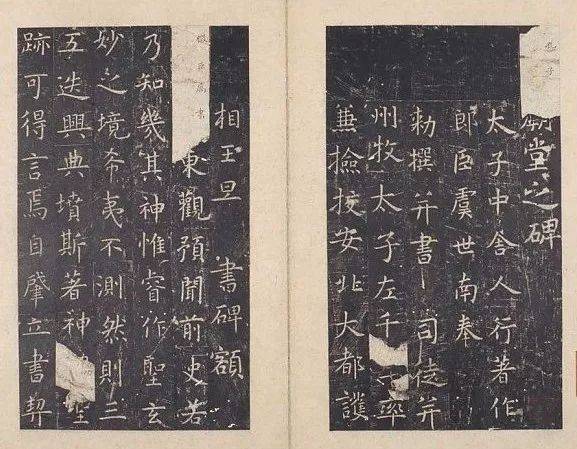 孔子廟堂之碑
太子中舍人行著作
郎臣虞世南奉
勑撰并書 司徒并
州牧太子左千率
兼撿挍安北大都護
相王旦 書碑額
微臣屬書東觀預聞前史若
乃知幾其神惟睿作聖玄
妙之境希夷不測然則三
五迭興典墳斯著神聖
跡可得言焉自肇立書契